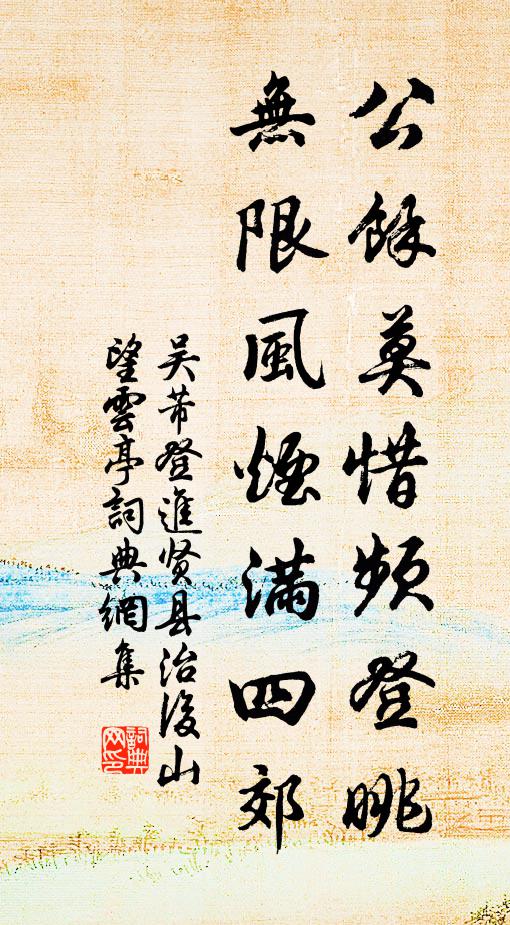 公餘莫惜頻登眺
無限風煙滿四郊
吴芾登進贤县治後山
望雲亭詞典網集
詞典網印